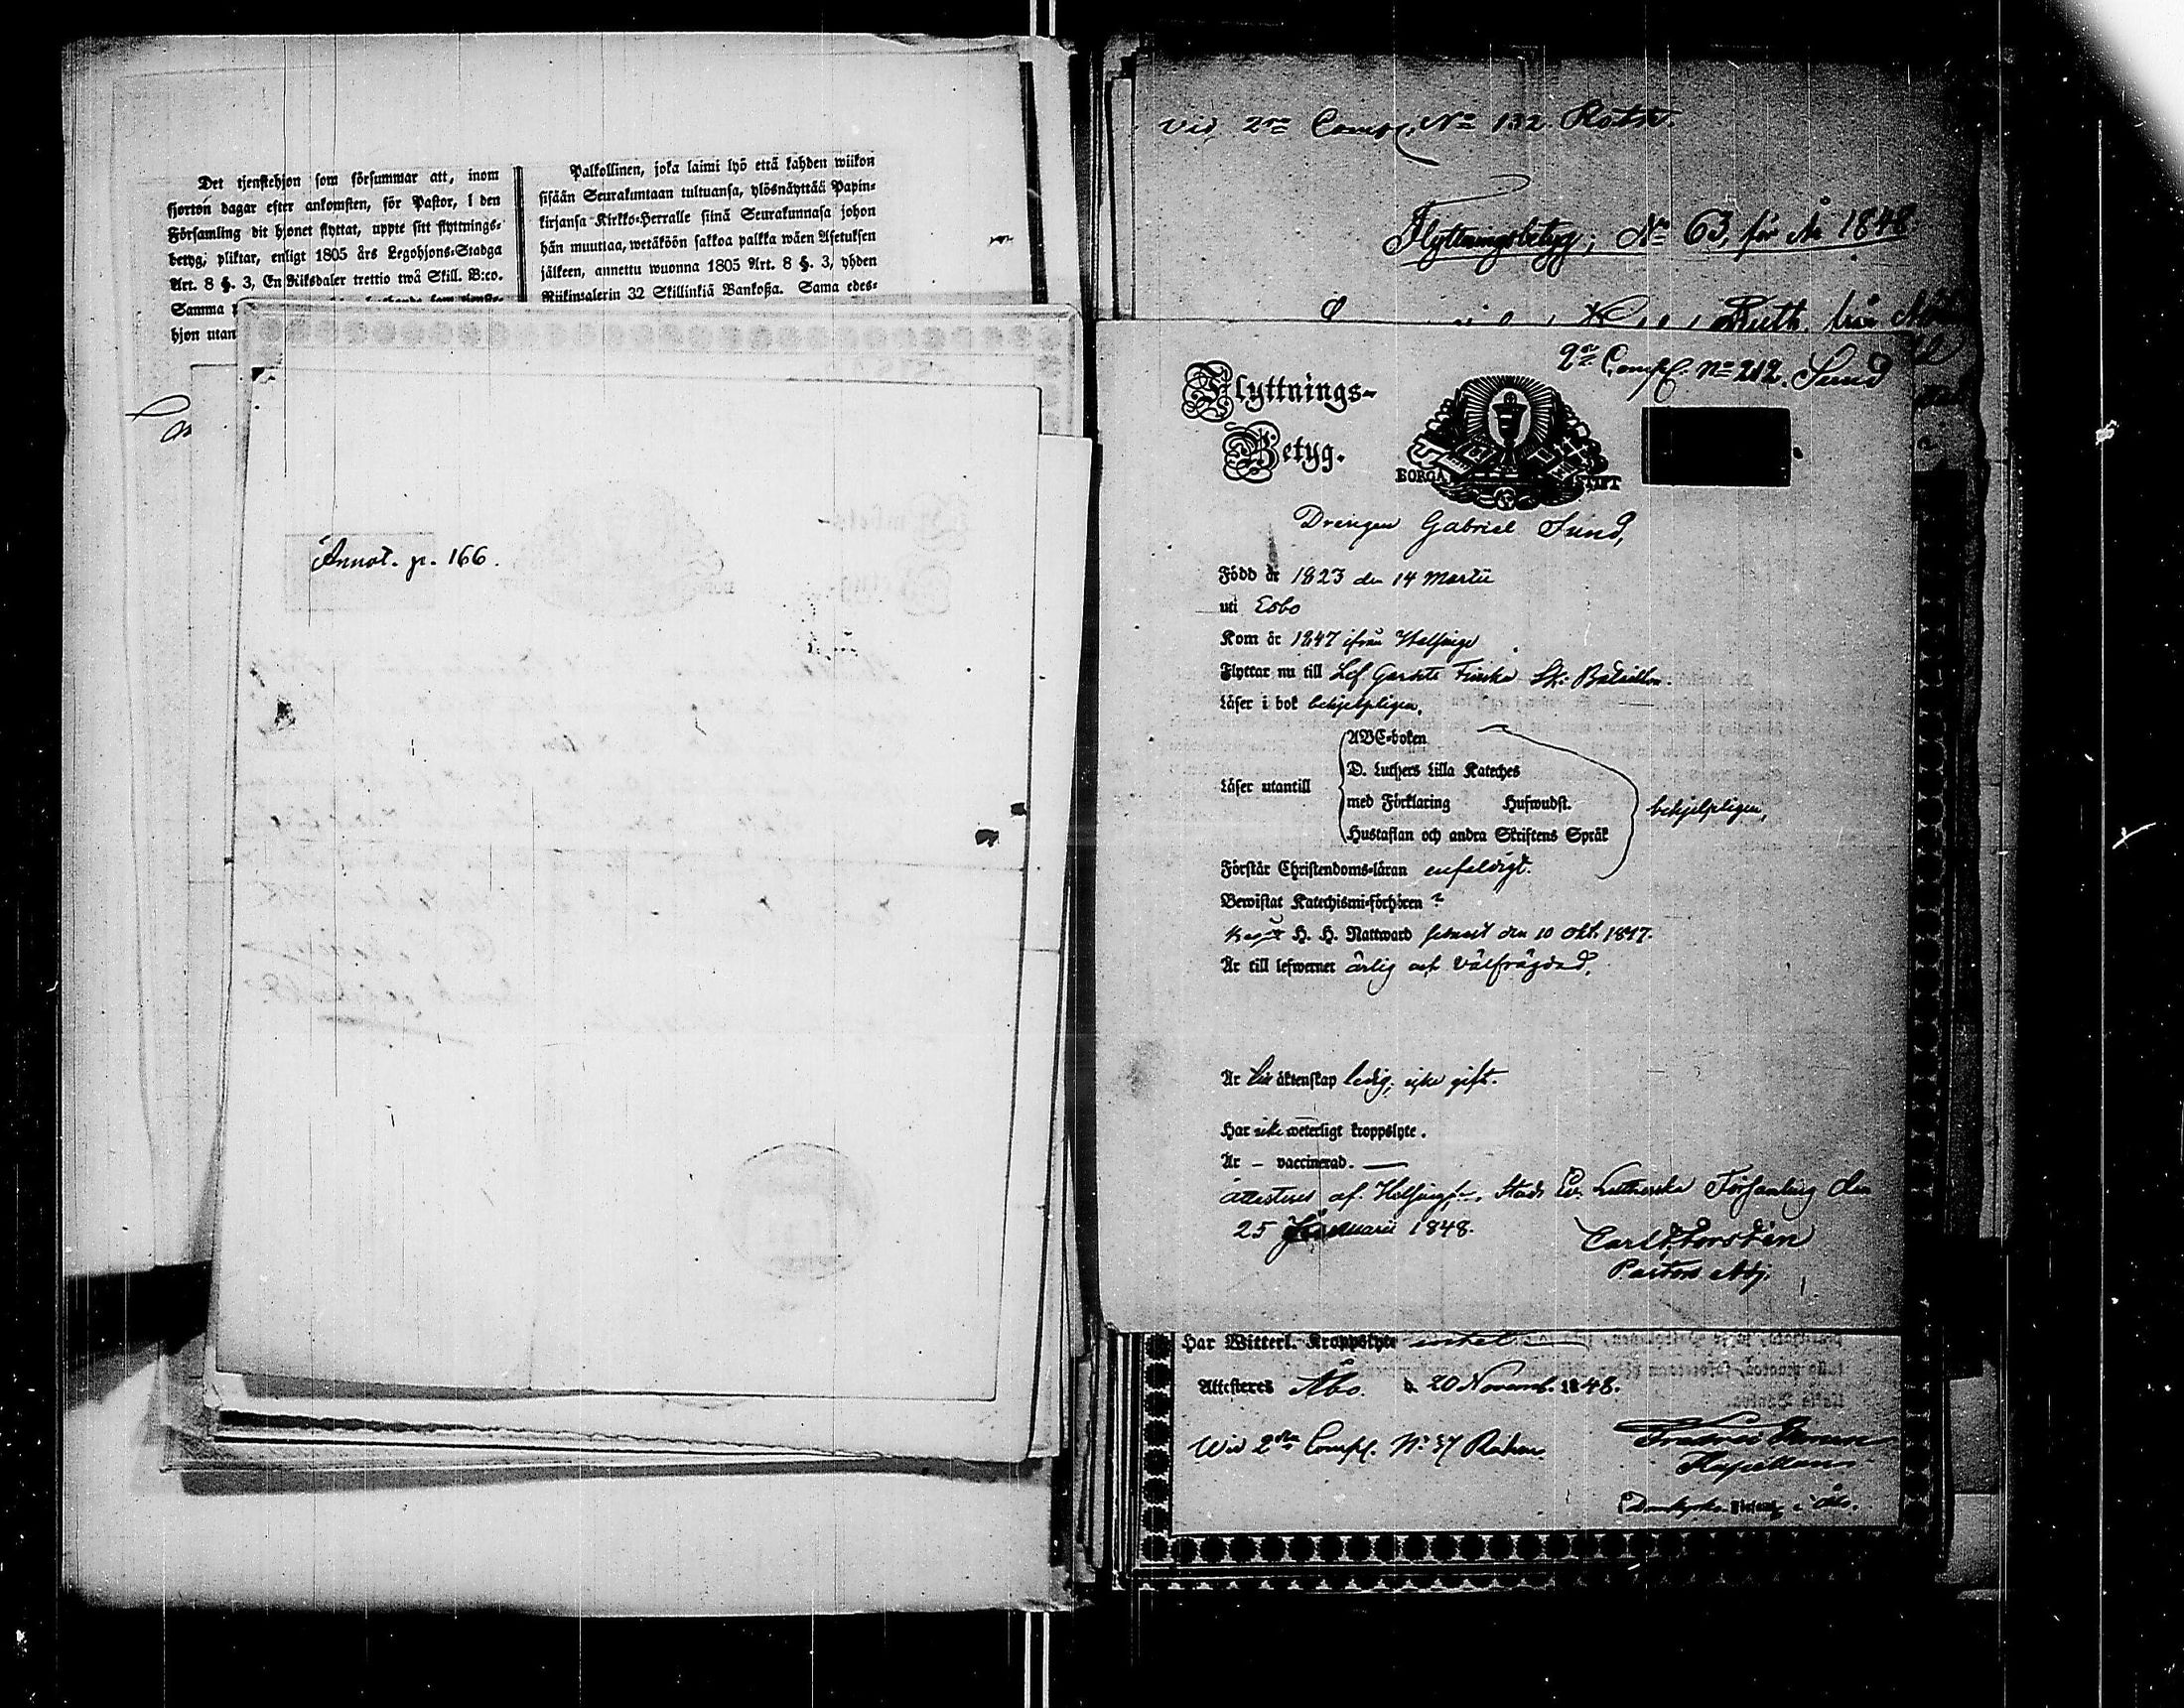 Det tjenstehjon som försummar att, inom
fjorton dagar efter ankomsten, för Pastor, i den
Församling dit hjonet flyttat, uppte sitt flyttnings-
betyg, pliktar, enligt 1805 års Legohjons-Stadga
Art. 8 §. 3, En Riksdaler trettio twå Skill. B:co.
Samma
hjon utan
Palkollinen, joka laimi lyö että kahden wiikon
sisään Seurakuntaan tultuansa, ylösnäyttää Papin-
kirjansa Kirkko-Herralle siinä Seurakunnasa johon
hän muuttaa, wetäköön sakkoa palkka wäen Asetuksen
jälkeen, annettu wuonna 1805 Art. 8 §. 3, yhden
Riikintalerin 32 Skillinkiä Bankoßa. Sama edes-
Annot. p. 166.
Vid 2ra Comp. No 132. Rötsk.
Flyttningsbetyg; No 63, för år 1848
2ra Comp. No 212. Sund
Flyttnings-
Betyg.
BORGÅ STIFT
Drengen Gabriel Sund,
Född år 1823 den 14 Martii
uti Esbo
Kom år 1847 ifrån Helsinge
Flyttar nu till Lif Gardets Finska Sk: Bataillon.
Läser i bok behjelpligen,
Läser utantill
ABC-boken
D. Luthers Lilla Kateches
med Förklaring Hufwudst.
Hustaflan och andra Skriftens Språk
behjelpligen,
Förstår Christendoms-läran enfaldigt.
Bewistat Katechismi-förhören ?
H. H. Nattward den 10 Okt. 1847.
Är till lefwernet ärlig och välfrägdad,
Är till äktenskap ledig, ejke gift.
Har icke weterligt kroppslyte.
Är – vaccinerad. —
Attesteras af Helsingf. Stads Ev. Lutherska Församling den
25 Januarii 1848.
Carl Forstén
Pastors Adj.
Har Witterl. Kroppslyte intet
Attesteres Åbo. d. 20 Novemb. 1848.
Wid 2dra Comp. No 37
Kapellan
i Åbo.